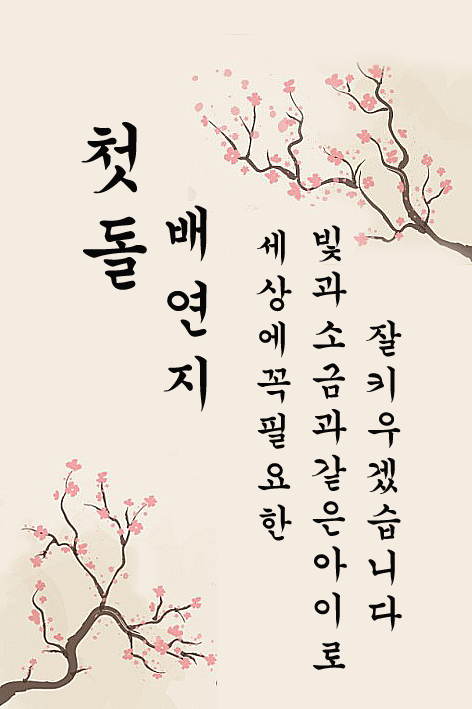 첫돌
배연지
세상에꼭필요한
빛과소금과같은아이로
잘키우겠습니다